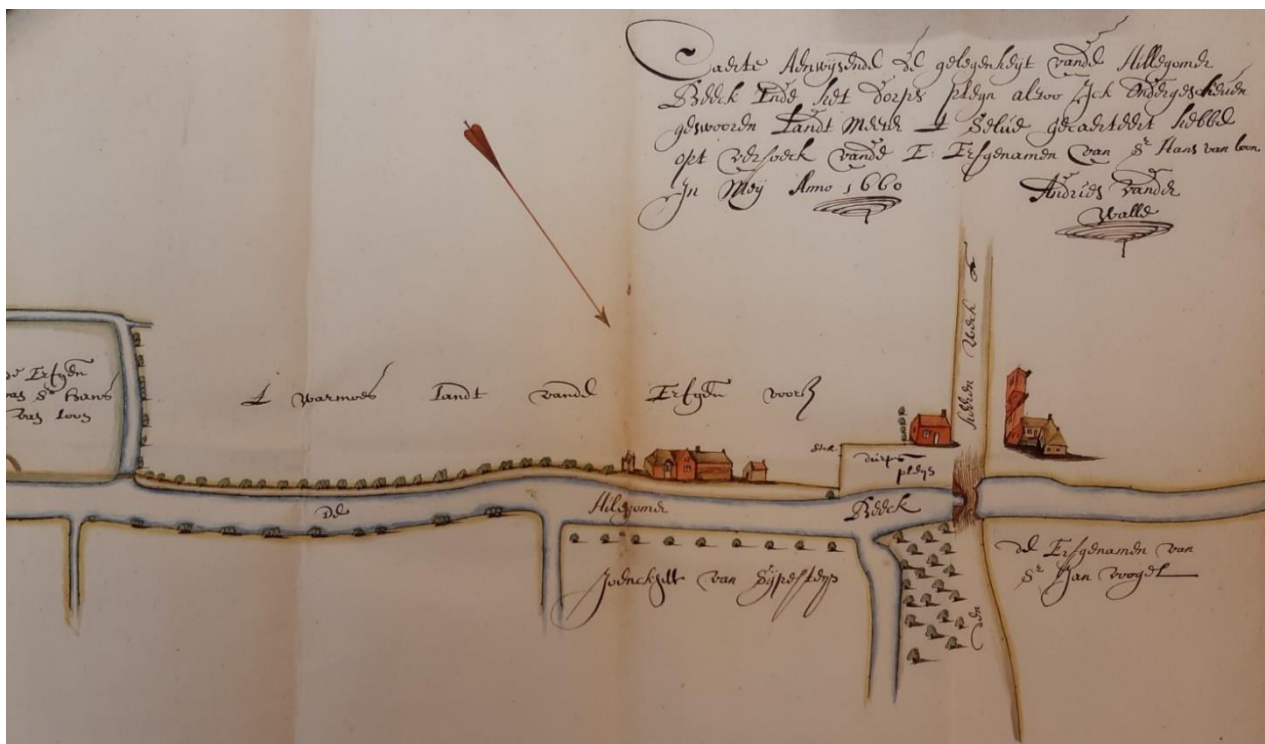 Caerte Aenwijsende de gelegenheyt vande Hillegomer
Beeck Ende het dorps pleyn alsoo Ick Ondergeschreven
geswooren Landt Meeter t Selve gecaerteert hebbe
opt versoeck vande E: Erfgenamen van Sr Hans van loon.
In Meij Anno 1660
Andries vander
Walle
de Erfgen
van Sr Hans
van Loon
t warmoes landt vande Erfgen voorsz
heeren
dorps
pleyn
De Hilgomer Beeck
Joenckhr van Sijpesteyn
de Erfgenamen van
Sr Jan voogel